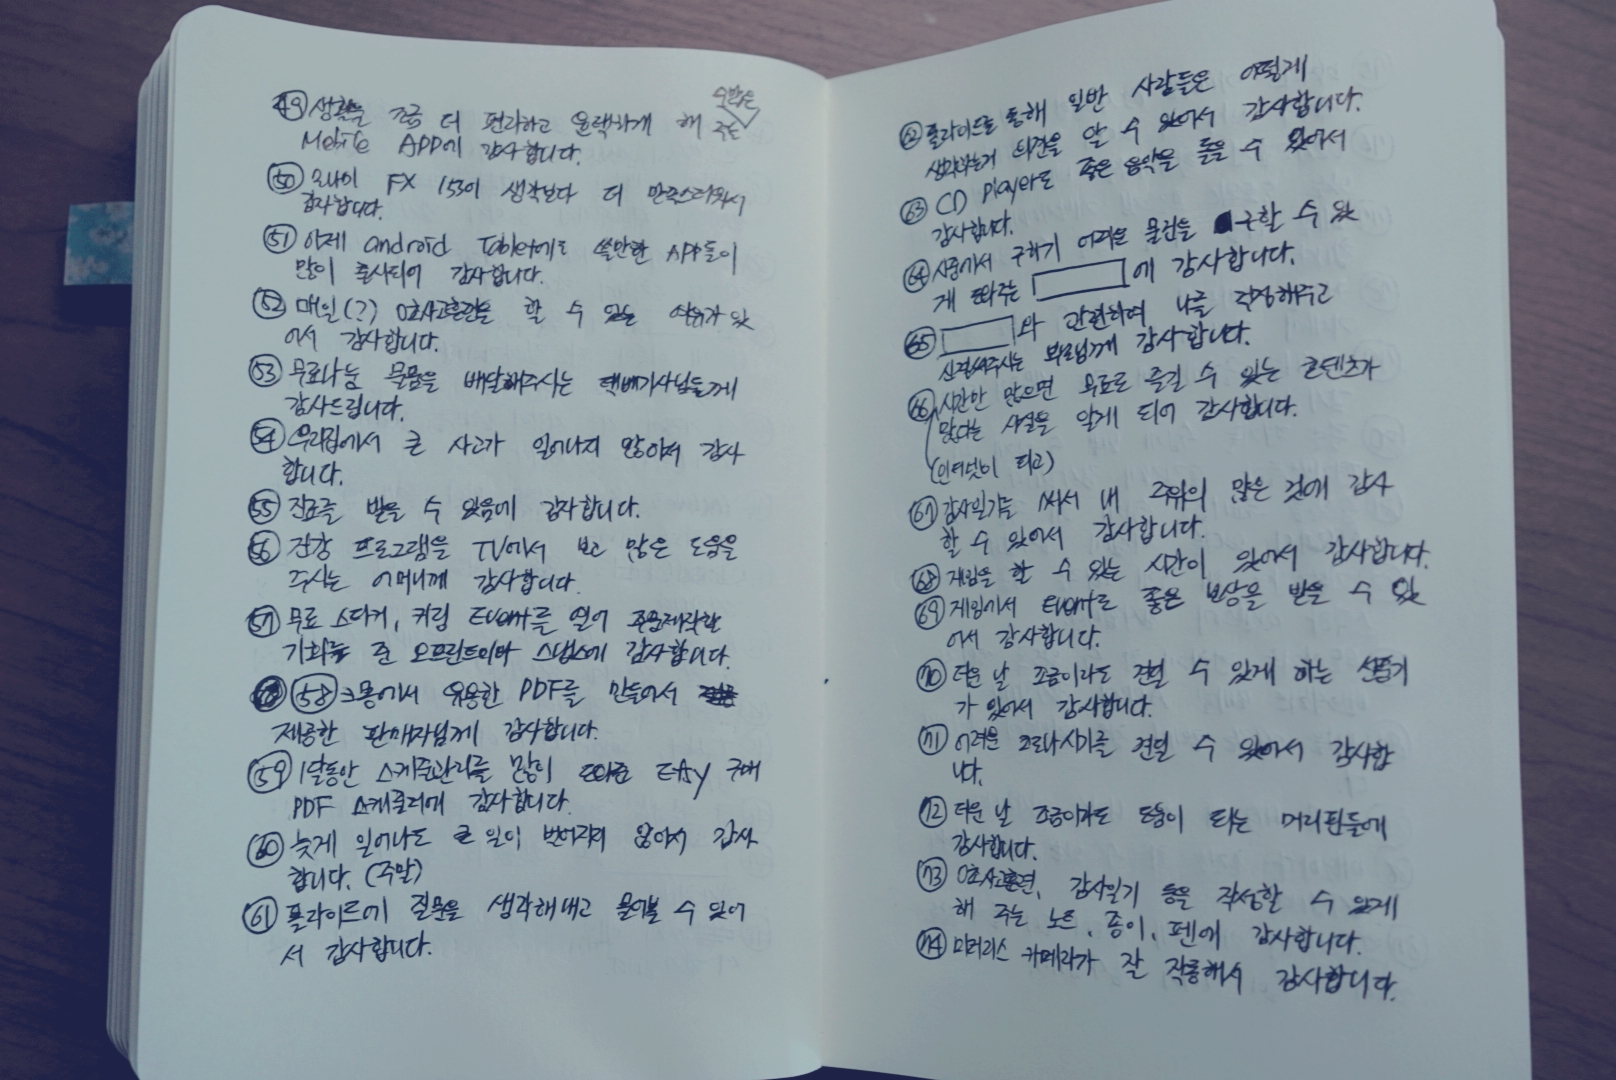 ㊾ 생활을 조금 더 편리하고 윤택하게 해 주는 수많은
Mobile APP에 감사합니다.
㊿ 모나미 FX 153이 생각보다 더 만족스러워서
감사합니다.
51 이제 android Tablet에도 쓸만한 APP들이
많이 출시되어 감사합니다.
52 매일(?) 0초사고훈련을 할 수 있는 여유가 있
어서 감사합니다.
53 무료나눔 물품을 배달해주시는 택배기사님들께
감사드립니다.
54 우리집에서 큰 사고가 일어나지 않아서 감사
합니다.
55 진료를 받을 수 있음에 감사합니다.
56 건강 프로그램을 TV에서 보고 많은 도움을
주시는 어머니께 감사합니다.
57 무료 스티커, 키링 Event를 열어 주문제작한
기회를 준 오프린트미와 스냅스에 감사합니다.
58 크몽에서 유용한 PDF를 만들어서
제공한 판매자님께 감사합니다.
59 1달동안 스케줄관리를 많이 도와준 Etsy 구매
PDF 스케쥴러에 감사합니다.
60 늦게 일어나도 큰 일이 벌어지지 않아서 감사
합니다. (주말)
61 플라이드에 질문을 생각해내고 물어볼 수 있어
서 감사합니다.
62 플라이드를 통해 일반 사람들은 어떻게
생각하는지 의견을 알 수 있어서 감사합니다.
63 CD Player로 좋은 음악을 들을 수 있어서
감사합니다.
64 시중에서 구하기 어려운 물건을 구할 수 있
게 도와주는 에 감사합니다.
65 와 관련하여 나를 걱정해주고
신경써주시는 부모님께 감사합니다.
66 시간만 많으면 무료로 즐길 수 있는 콘텐츠가
많다는 사실을 알게 되어 감사합니다.
(인터넷이 되고)
67 감사일기를 써서 내 주위의 많은 것에 감사
할 수 있어서 감사합니다.
68 게임을 할 수 있는 시간이 있어서 감사합니다.
69 게임에서 Event로 좋은 보상을 받을 수 있
어서 감사합니다.
70 더운 날 조금이라도 견딜 수 있게 하는 선풍기
가 있어서 감사합니다.
71 어려운 코로나시기를 견딜 수 있어서 감사합
니다.
72 더운 날 조금이라도 도움이 되는 머리핀들에
감사합니다.
73 0초사고훈련, 감사일기 등을 작성할 수 있게
해 주는 노트, 종이, 펜에 감사합니다.
74 미러리스 카메라가 잘 작동해서 감사합니다.